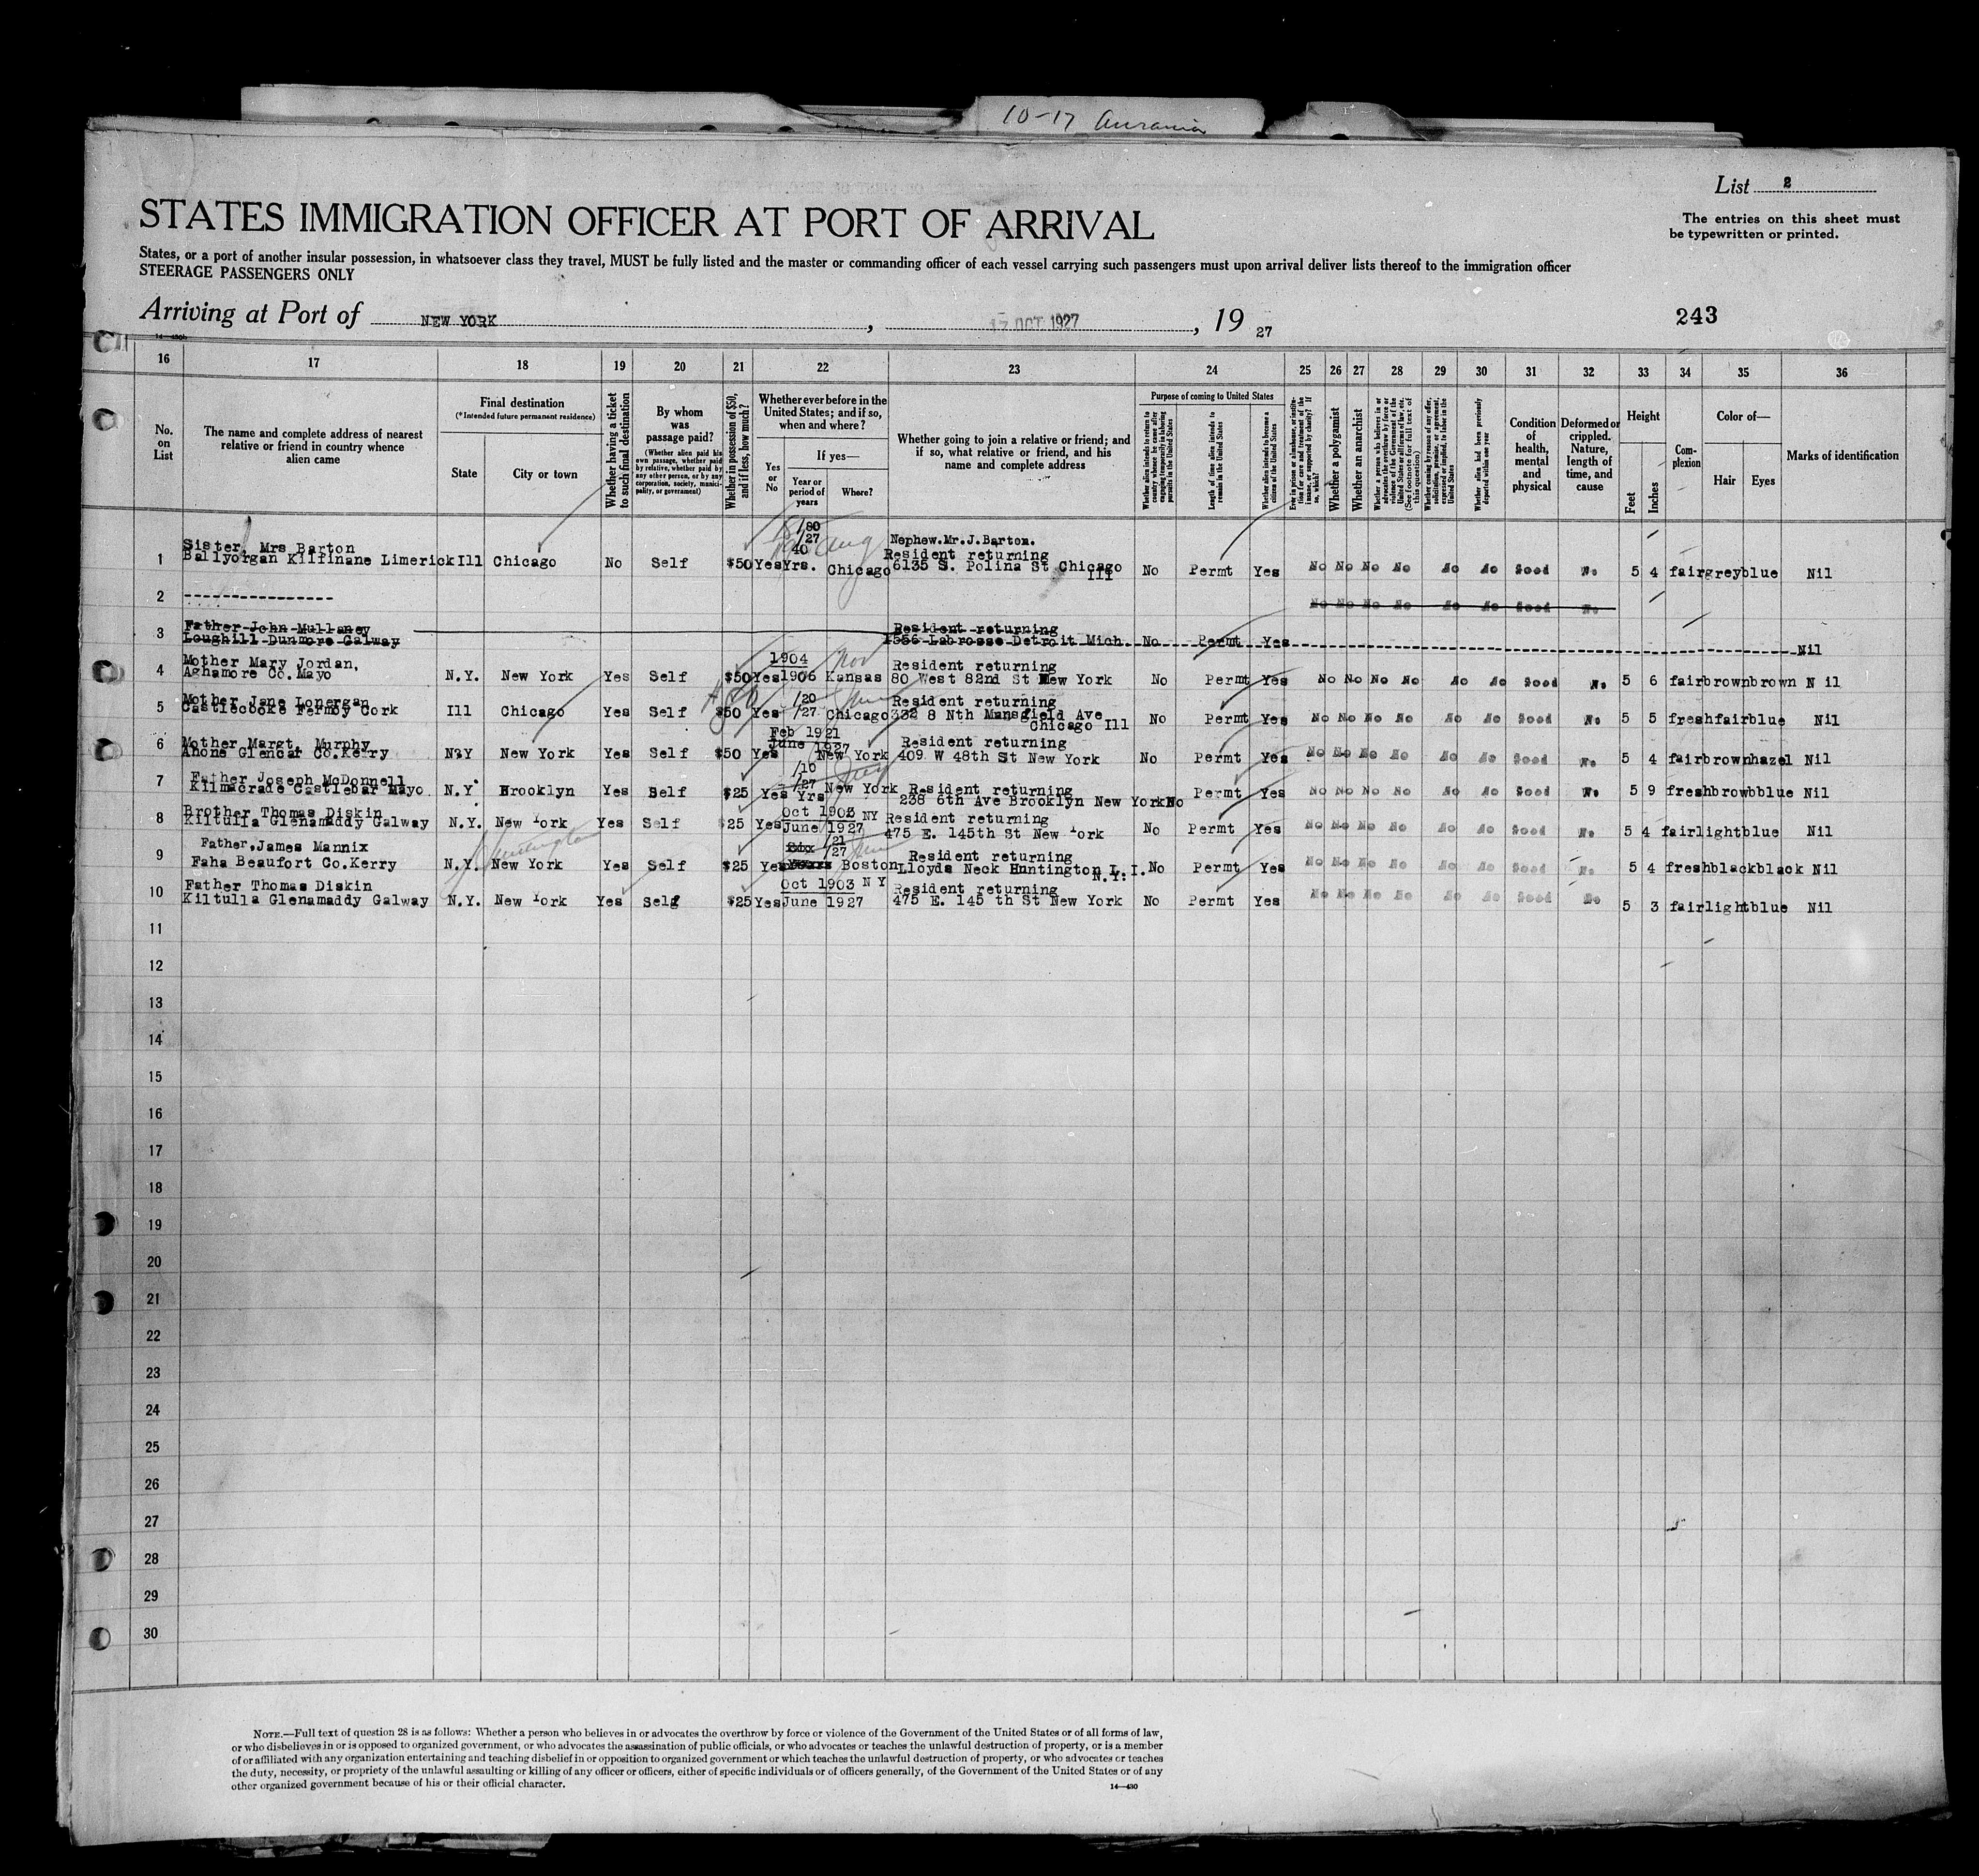 10-17 Aurania
List 2
STATES IMMIGRATION OFFICER AT PORT OF ARRIVAL
The entries on this sheet must
be typewritten or printed.
States, or a port of another insular possession, in whatsoever class they travel, MUST be fully listed and the master or commanding officer of each vessel carrying such passengers must upon arrival deliver lists thereof to the immigration officer
STEERAGE PASSENGERS ONLY
Arriving at Port of NEW YORK, 17 OCT 1927, 19 27
243
14-430b
16 17 18 19 20 21 22 23 24 25 26 27 28 29 30 31 32 33 34 35 36
No. on List
The name and complete address of nearest relative or friend in country whence alien came
Final destination
(*Intended future permanent residence)
State
City or town
Whether having a ticket to such final destination
By whom was passage paid?
(Whether alien paid his own passage, whether paid by relative, whether paid by any other person, or by any corporation, society, municipality, or government)
Whether in possession of $50, and if less, how much?
Whether ever before in the United States; and if so, when and where?
Yes or No
If yes—
Year or period of years
Where?
Whether going to join a relative or friend; and if so, what relative or friend, and his name and complete address
Purpose of coming to United States
Whether alien intends to return to country whence he came after engaging temporarily in laboring pursuits in the United States
Length of time alien intends to remain in the United States
Whether alien intends to become a citizen of the United States
Ever in prison or almshouse, or institution for care and treatment of the insane, or supported by charity? If so, which?
Whether a polygamist
Whether an anarchist
Whether a person who believes in or advocates the overthrow by force or violence of the Government of the United States or all forms of law, etc. (See footnote for full text of this question)
Whether coming by reason of any offer, solicitation, promise, or agreement, expressed or implied, to labor in the United States
Whether alien had been previously deported within one year
Condition of health, mental and physical
Deformed or crippled. Nature, length of time, and cause
Height
Feet
Inches
Complexion
Color of—
Hair Eyes
Marks of identification
1 Sister, Mrs Barton
Ballyorgan Kilfinane Limerick Ill Chicago No Self $50 Yes /80 /27 40 Yrs. Aug Chicago Nephew.Mr.J.Barton. Resident returning 6135 S. Polina St Chicago Ill No Permt Yes No No No No No No Good No 5 4 fair grey blue Nil
2 ----------------
No No No No No No Good No
3 Father John Mullaney
Loughill Dunmore Galway Resident returning 1556 Labrosse Detroit Mich. No Permt Yes Nil
4 Mother Mary Jordan,
Aghamore Co.Mayo N.Y. New York Yes Self $50 Yes 1904 1906 Nov Kansas Resident returning 80 West 82nd St New York No Permt Yes No No No No No No Good No 5 6 fair brown brown Nil
5 Mother Jane Lonergan
Castlecooke Fermoy Cork Ill Chicago Yes Self $50 Yes /20 /27 Chicago Resident returning 332 8 Nth Mansfield Ave Chicago Ill No Permt Yes No No No No No No Good No 5 5 fresh fair blue Nil
6 Mother Margt. Murphy
Ahone Glencar Co.Kerry N?Y New York Yes Self $50 Yes Feb 1921 June 1927 New York Resident returning 409 W 48th St New York No Permt Yes No No No No No No Good No 5 4 fair brown hazel Nil
7 Father Joseph McDonnell
Kilmacrade Castlebar Mayo N.Y. Brooklyn Yes Self $25 Yes /10 /27 Yrs New York Resident returning 238 6th Ave Brooklyn New York No Permt Yes No No No No No No Good No 5 9 fresh browb blue Nil
8 Brother Thomas Diskin
Kiltulla Glenamaddy Galway N.Y. New York Yes Self $25 Yes Oct 1903 NY June 1927 Resident returning 475 E. 145th St New York No Permt Yes No No No No No No Good No 5 4 fair light blue Nil
9 Father,James Mannix
Faha Beaufort Co.Kerry N.Y. New York Huntington Yes Self $25 Yes /21 /27 June Boston Resident returning Lloyds Neck Huntington L.I. N.Y. No Permt Yes No No No No No No Good No 5 4 fresh black black Nil
10 Father Thomas Diskin
Kiltulla Glenamaddy Galway N.Y. New York Yes Selg $25 Yes Oct 1903 NY June 1927 Resident returning 475 E. 145 th St New York No Permt Yes No No No No No No Good No 5 3 fair light blue Nil
11
12
13
14
15
16
17
18
19
20
21
22
23
24
25
26
27
28
29
30
NOTE.—Full text of question 28 is as follows: Whether a person who believes in or advocates the overthrow by force or violence of the Government of the United States or of all forms of law,
or who disbelieves in or is opposed to organized government, or who advocates the assassination of public officials, or who advocates or teaches the unlawful destruction of property, or is a member
of or affiliated with any organization entertaining and teaching disbelief in or opposition to organized government or which teaches the unlawful destruction of property, or who advocates or teaches
the duty, necessity, or propriety of the unlawful assaulting or killing of any officer or officers, either of specific individuals or of officers generally, of the Government of the United States or of any
other organized government because of his or their official character.
14—430